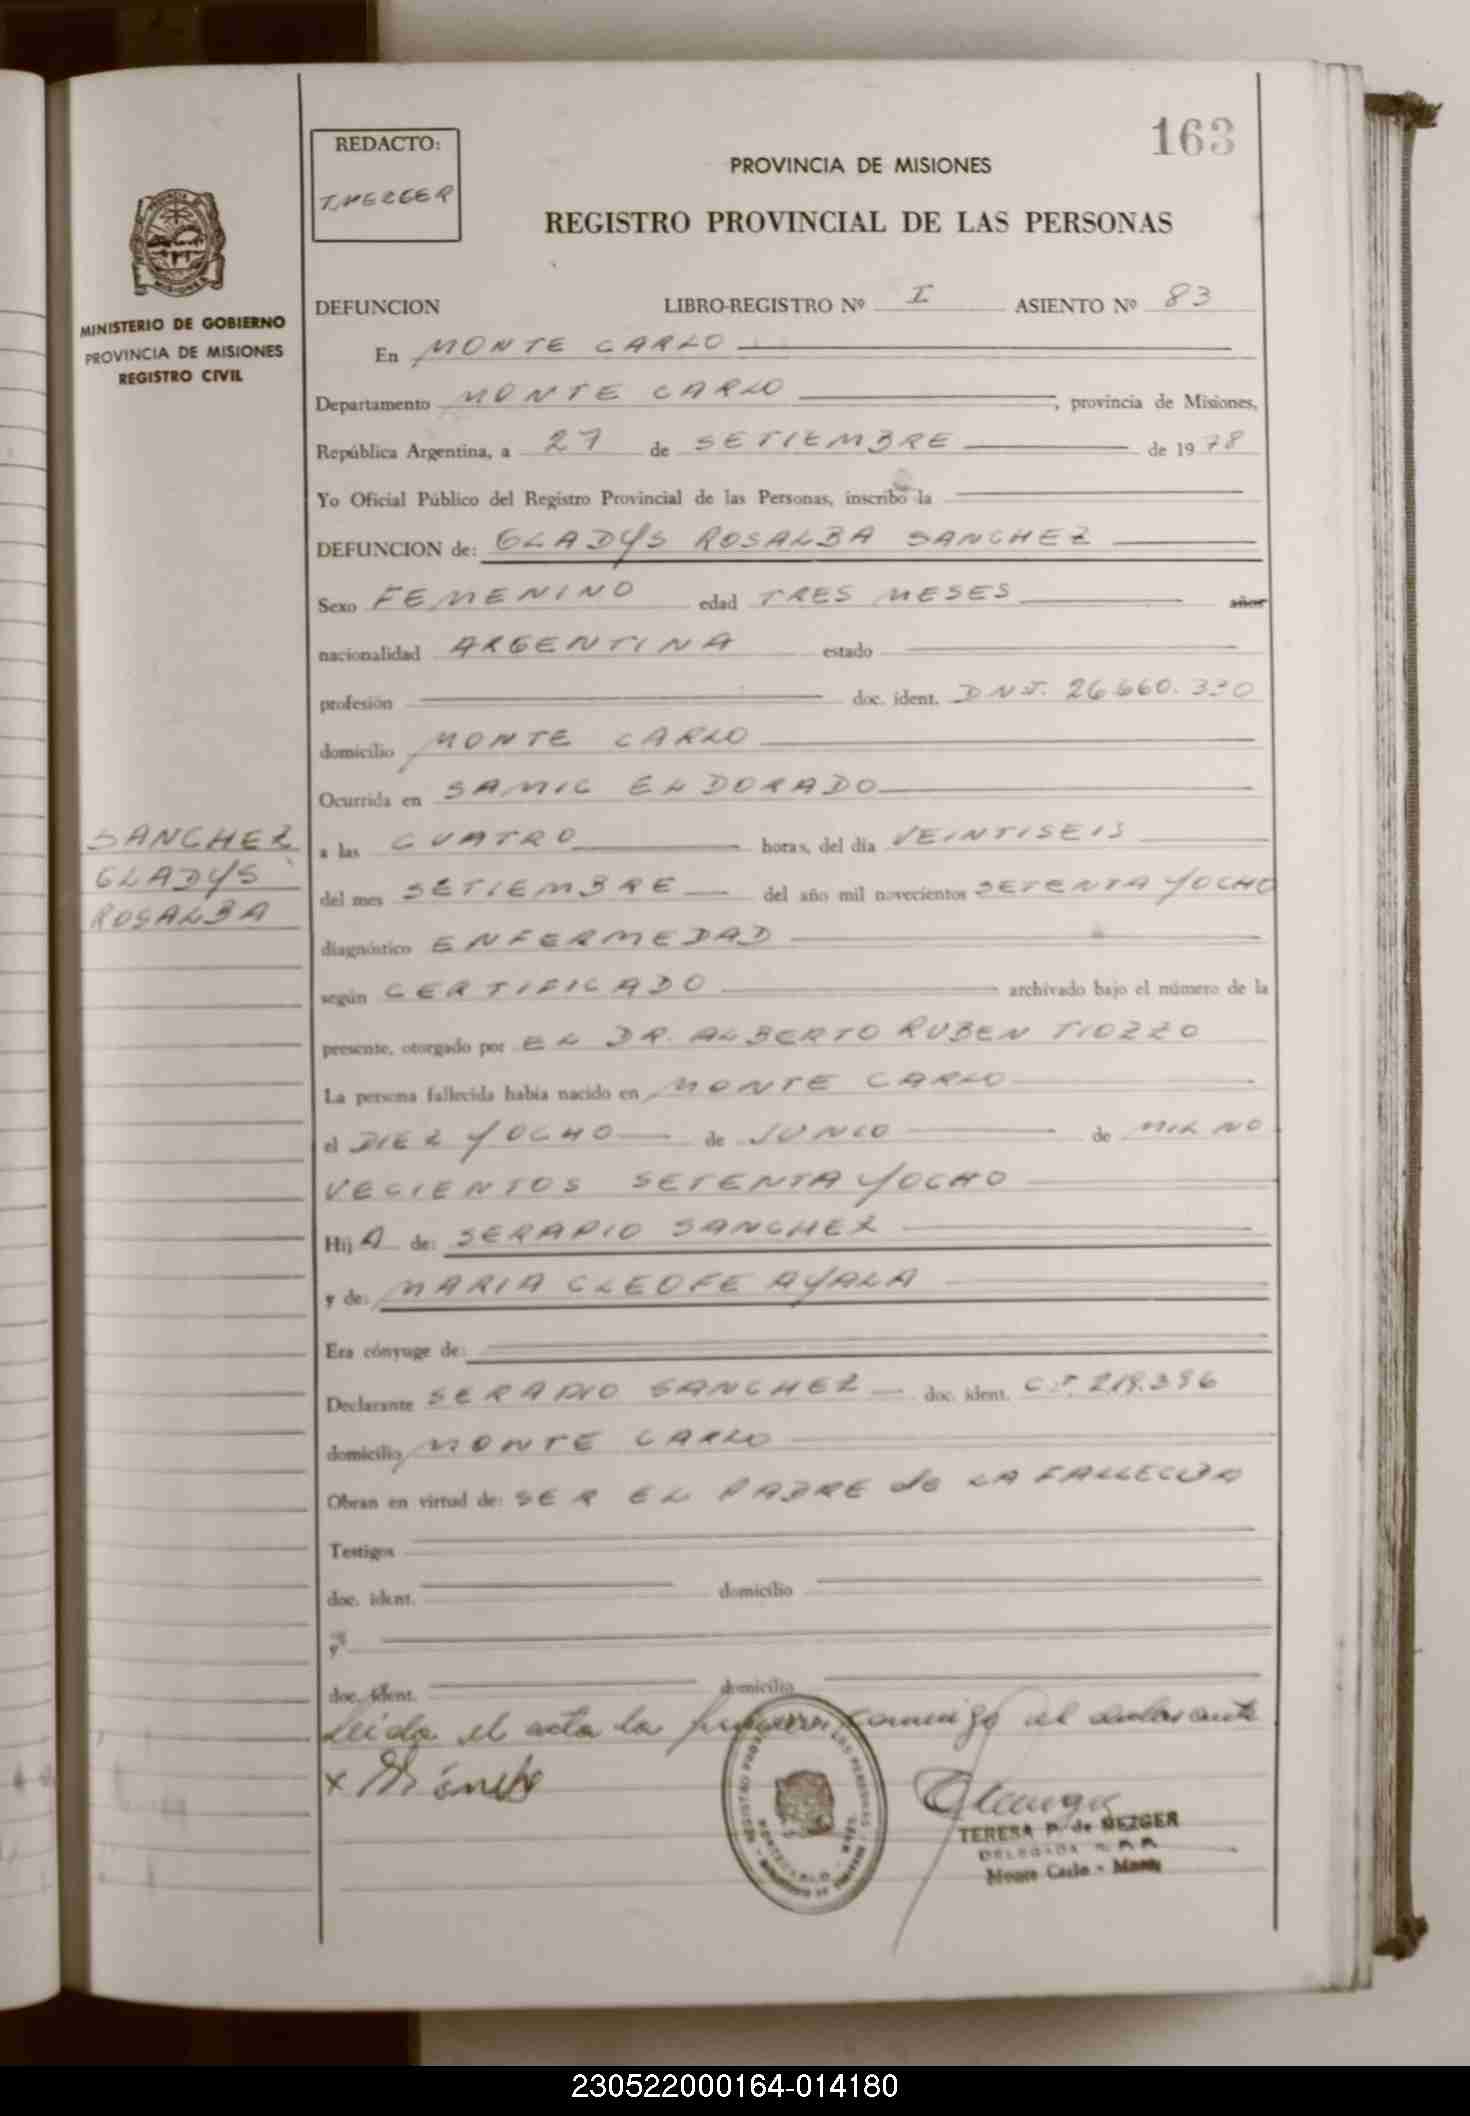 163
REDACTO:
T. MEZGER
PROVINCIA DE MISIONES
REGISTRO PROVINCIAL DE LAS PERSONAS
MINISTERIO DE GOBIERNO
PROVINCIA DE MISIONES
REGISTRO CIVIL
DEFUNCION LIBRO-REGISTRO Nº I ASIENTO Nº 83
En MONTE CARLO
Departamento MONTE CARLO, provincia de Misiones,
República Argentina, a 27 de SETIEMBRE de 1978
Yo Oficial Público del Registro Provincial de las Personas, inscribo la
DEFUNCION de: GLADYS ROSALBA SANCHEZ
Sexo FEMENINO edad TRES MESES años
nacionalidad ARGENTINA estado
profesión doc. ident. DNI. 26.660.330
domicilio MONTE CARLO
Ocurrida en SAMIC ELDORADO
SANCHEZ
GLADYS
ROSALBA
a las CUATRO horas, del día VEINTISEIS
del mes SETIEMBRE del año mil novecientos SETENTA Y OCHO
diagnóstico ENFERMEDAD
según CERTIFICADO archivado bajo el número de la
presente, otorgado por EL DR. ALBERTO RUBEN TIOZZO
La persona fallecida había nacido en MONTE CARLO
el DIEZ Y OCHO de JUNIO de MIL NO
VECIENTOS SETENTA Y OCHO
Hij A de: SERAPIO SANCHEZ
y de: MARIA CLEOFE AYALA
Era cónyuge de:
Declarante SERAPIO SANCHEZ doc. ident. C.I. 219.396
domicilio MONTE CARLO
Obran en virtud de: SER EL PADRE de LA FALLECIDA
Testigos
doc. ident. domicilio
y
doc. ident. domicilio
Leida el acta la firma conmigo el declarante
TERESA P. de MEZGER
DELEGADA
Monte Carlo - Mnes.
230522000164-014180